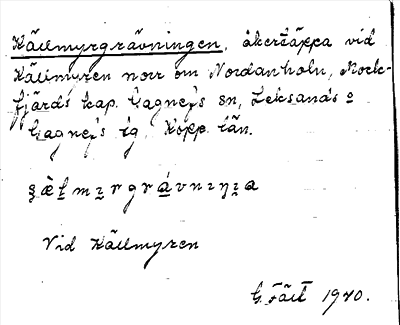 Källmyrgrävningen, åkertäppa vid
Källmyren norr om Nordanholn, Mock-
fjärds kap. Gagnefs sn, Leksands o
Gagnefs tg, Kopp. län.
Vid Källmyren
G. Fält 1940.